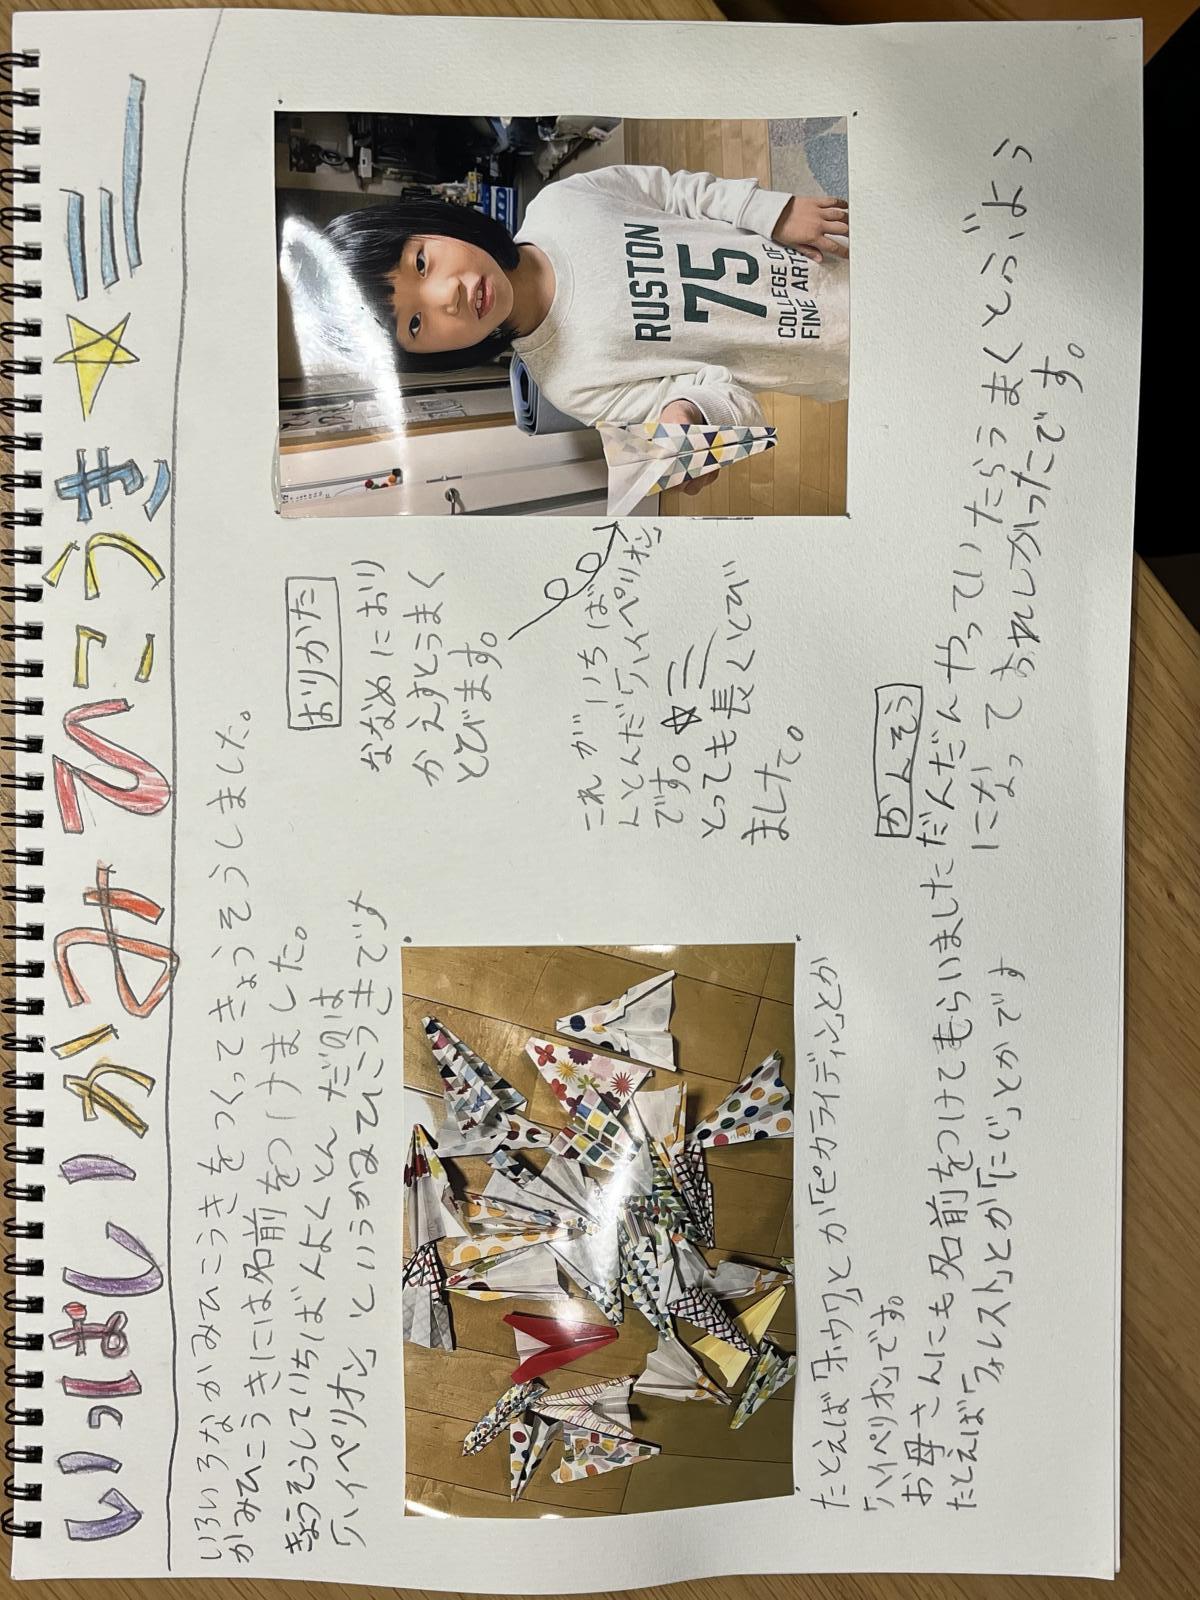 いっぱい かみひこうき☆
いろいろなかみひこうきをつくってきょうそうしました。
かみひこうきには名前をつけました。
きょうそうしていちばんよくとんだのは
「ハイペリオン」というかみひこうきです
おりかた
ななめにおり
かえすとうまく
とびます。
これがいちば
んとんだ「ハイペリオン」
です。
とっても長くとび
ました。
RUSTON
75
COLLEGE OF
FINE ARTS
たとえば「ホウワ」とか「ピカライディン」とか
「ハイペリオン」です。
お母さんにも名前をつけてもらいました
たとえば「フォレスト」とか「にじ」とかです
かんそう
だんだんやっていたらうまくとぶよう
になっておもしろかったです。